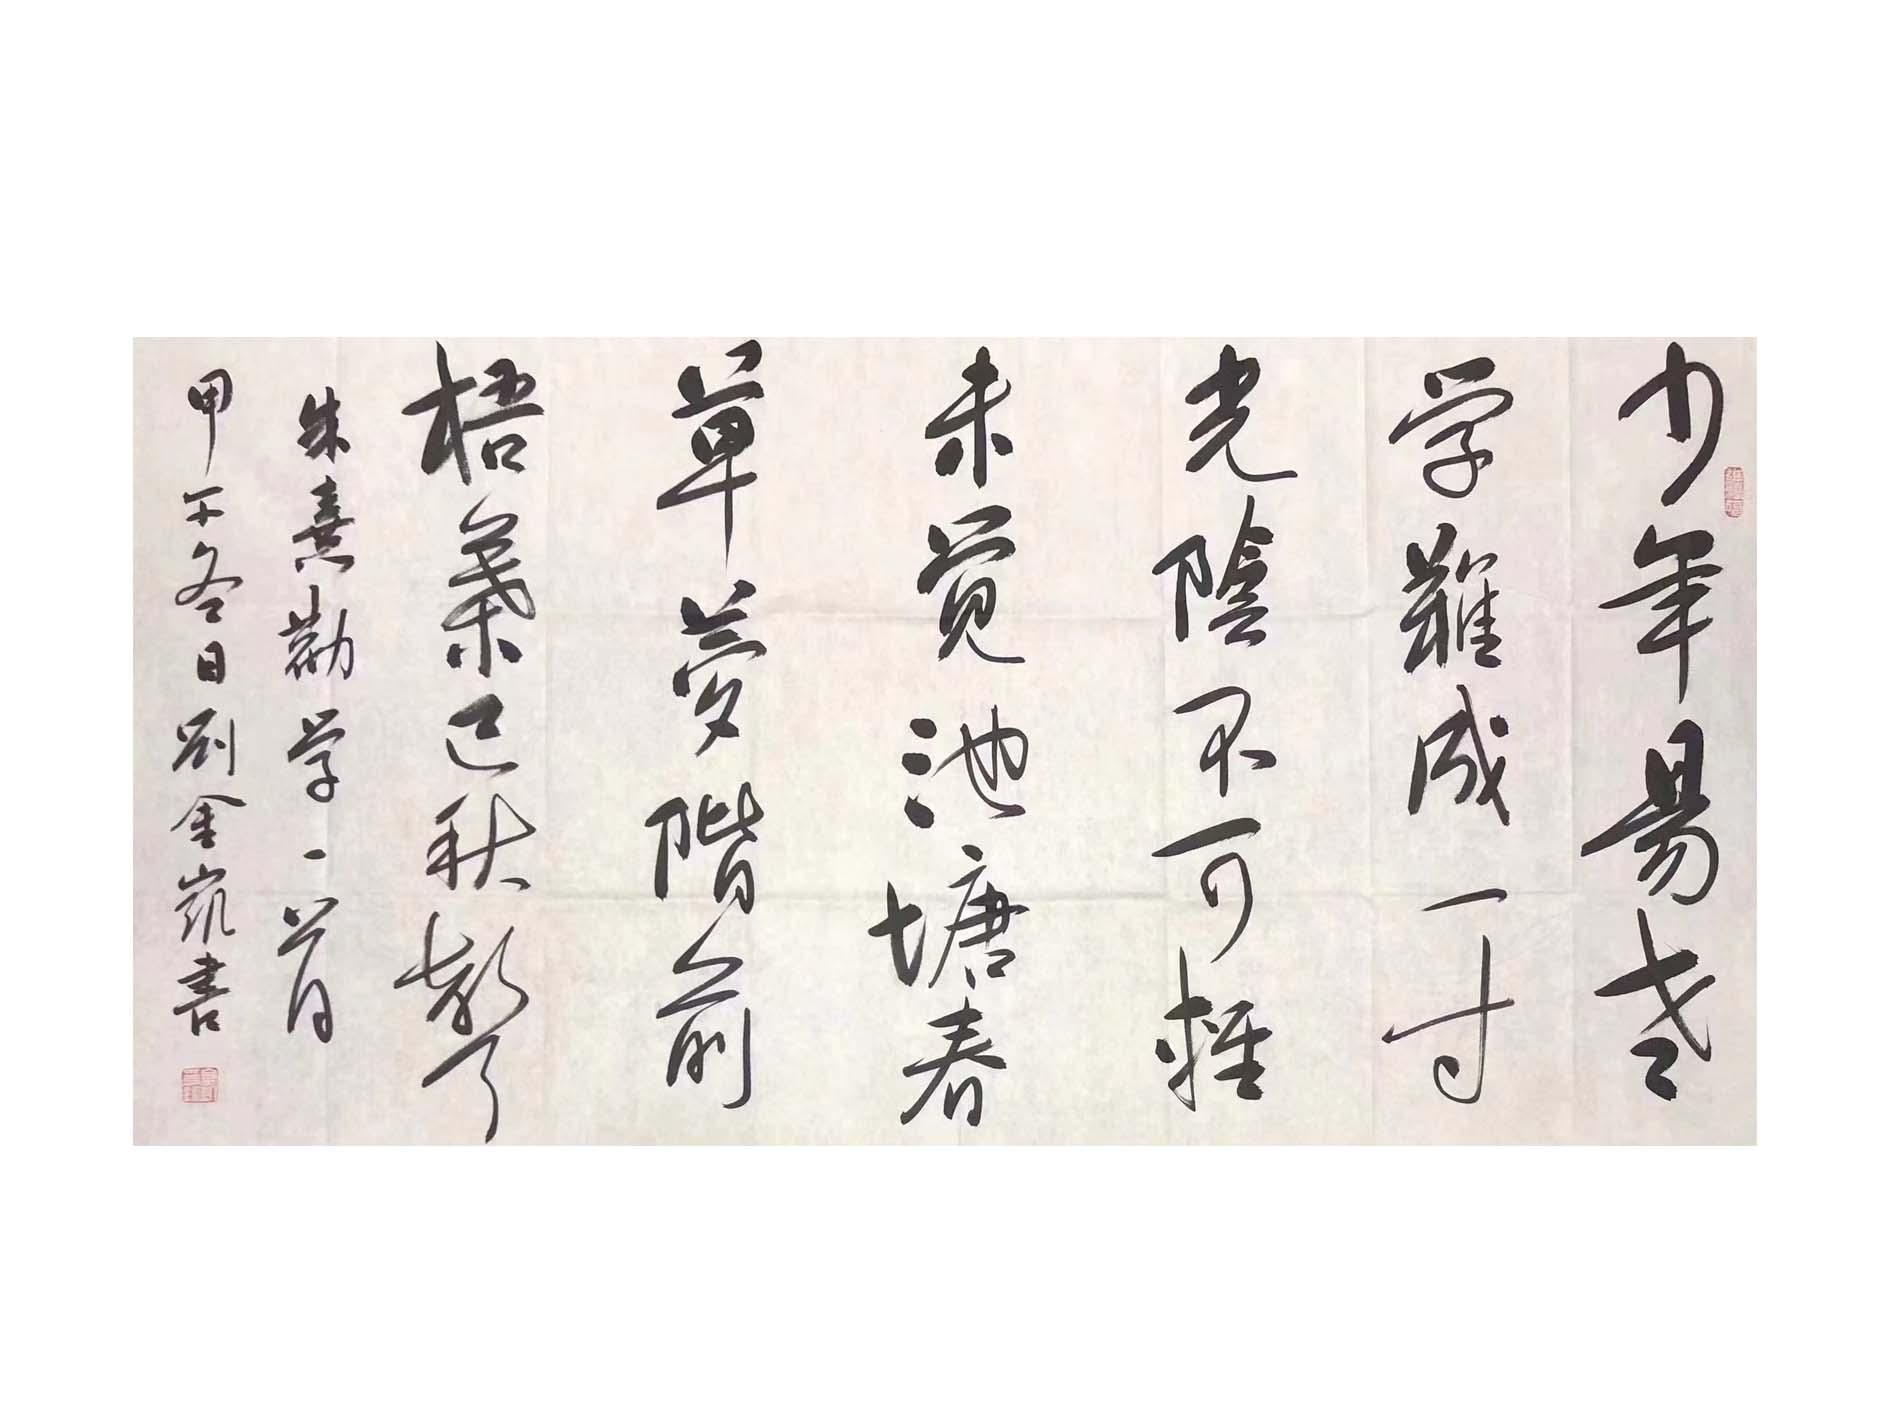 少年易老
学難成一寸
光陰不可輕
未覺池塘春
草夢階前
梧葉已秋聲
朱熹勸学一首
甲午冬日劉金凱書